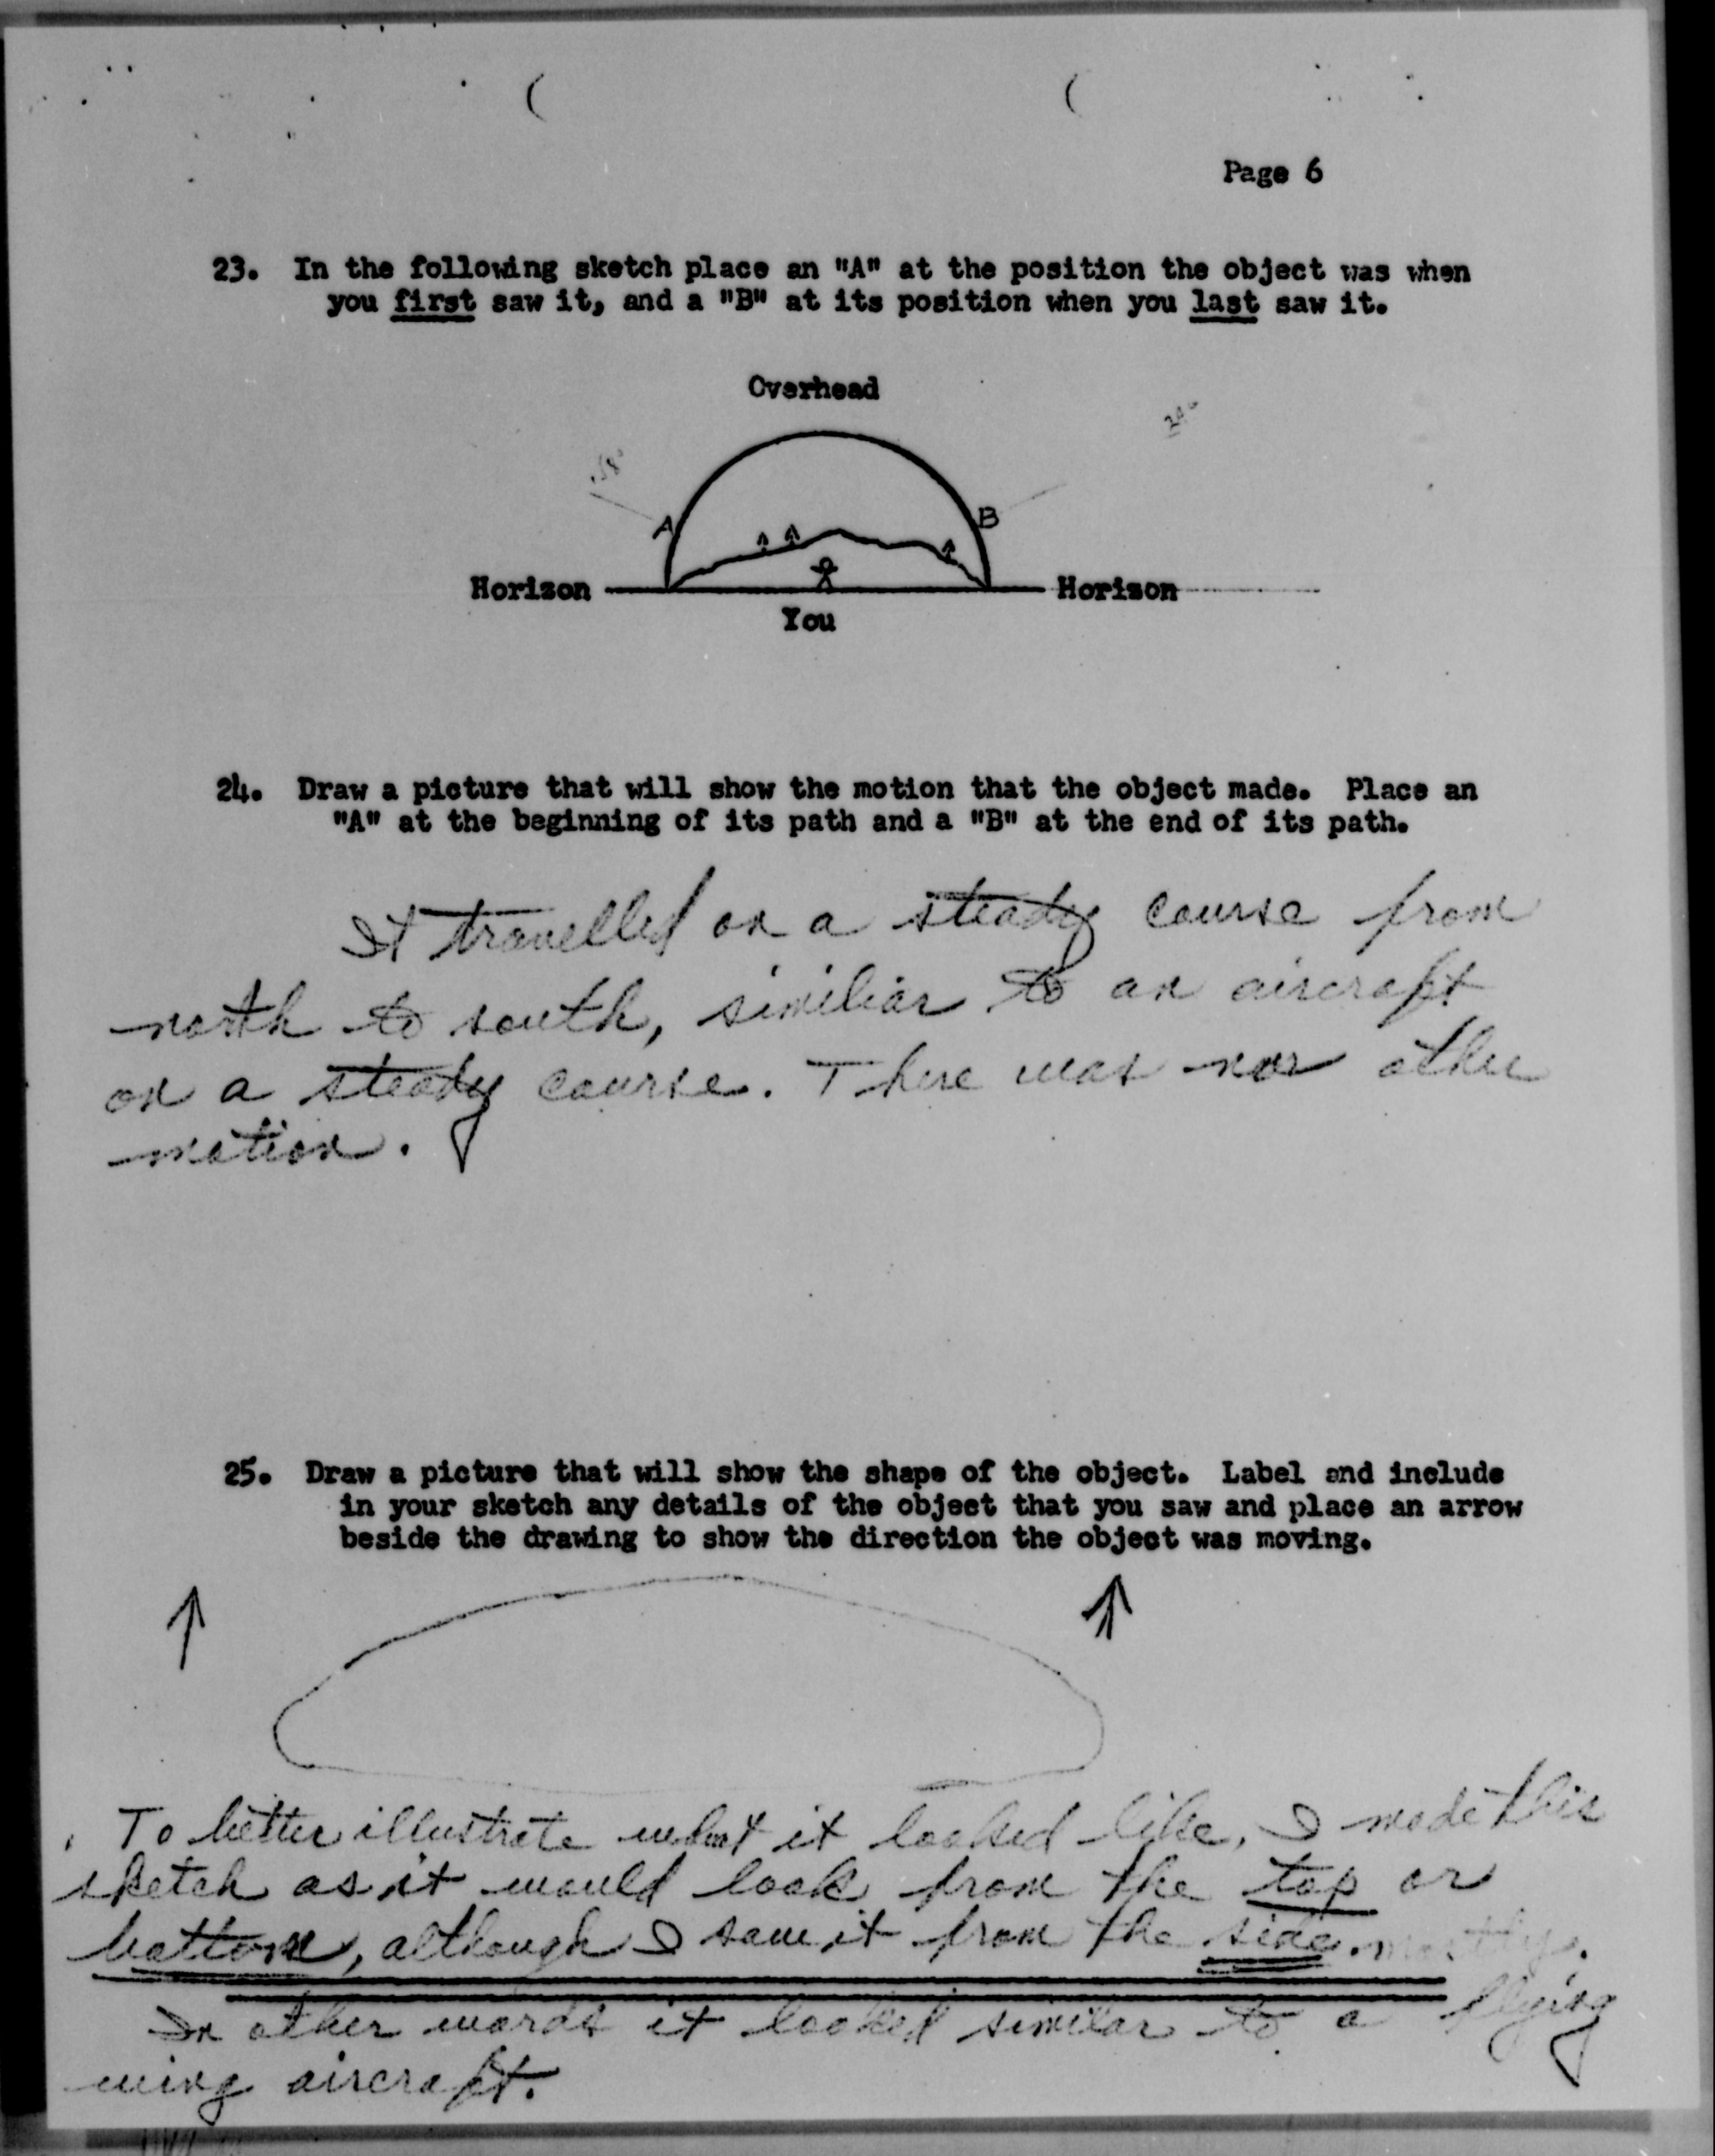 Page 6
23. In the following sketch place an "A" at the position the object was when
you first saw it, and a "B" at its position when you last saw it.
Overhead
A
B
Horizon
Horizon
You
24. Draw a picture that will show the motion that the object made. Place an
"A" at the beginning of its path and a "B" at the end of its path.
It travelled on a steady course from
north to south, similiar to an aircraft
on a steady course. There was no other
motion.
25. Draw a picture that will show the shape of the object. Label and include
in your sketch any details of the object that you saw and place an arrow
beside the drawing to show the direction the object was moving.
To better illustrate what it looked like, I made this
sketch as it would look from the top or
bottom, although I saw it from the side. mostly.
In other words it looked similar to a flying
wing aircraft.